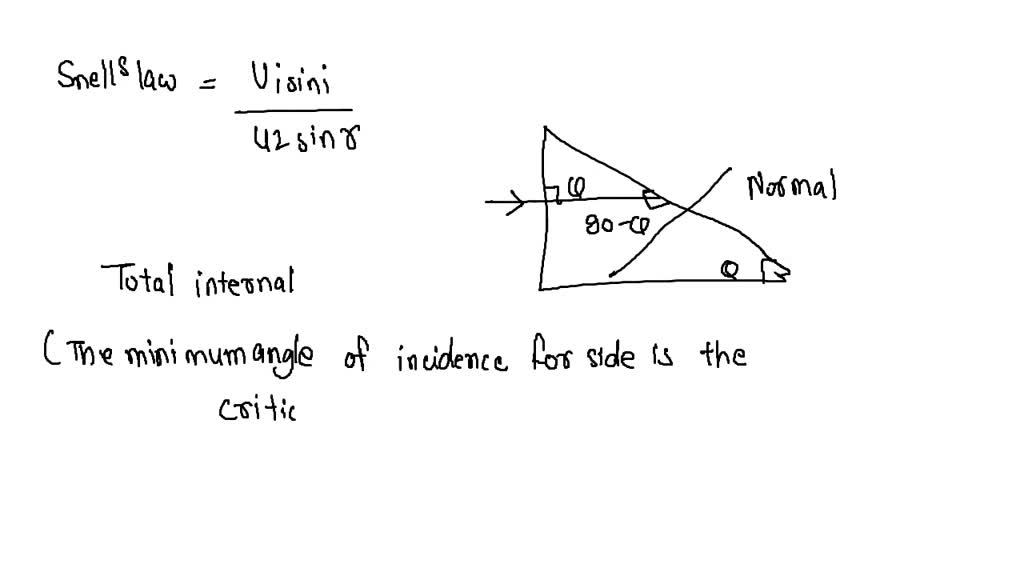 Snell's law = U1sini
U2 sin r
φ
Normal
90-φ
Total internal
φ
(The minimum angle of incidence for side is the
critic